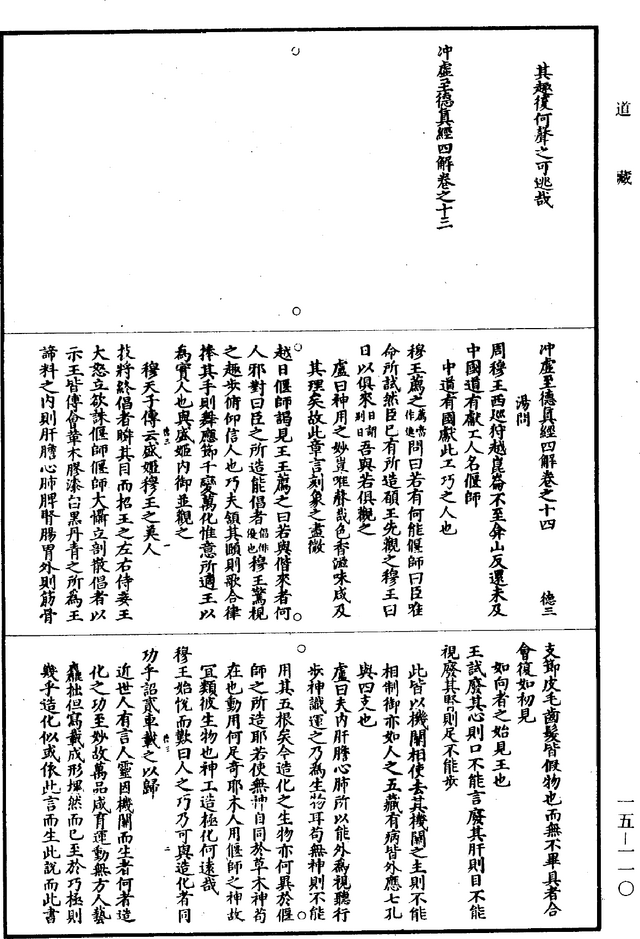 道藏
其趣復何聲之可逃哉
冲虛至德真經四解卷之十三
冲虛至德真經四解卷之十四 德三
湯問
周穆王西巡狩越崑崙不至弇山反還未及
中國道有獻工人名偃師
中道有國獻此工巧之人也
穆王薦之薦當作進問曰若有何能偃師曰臣唯
命所試然臣已有所造願王先觀之穆王曰
日以俱來日謂別日吾與若俱觀之
盧曰神用之妙豈唯聲哉色香滋味咸及
其理矣故此章言刻象之盡微
越日偃師謁見王王薦之曰若與偕來者何
人邪對曰臣之所造能倡者倡俳優也穆王驚視
之趣步俯仰信人也巧夫領其頤則歌合律
捧其手則舞應節千變萬化惟意所適王以
為實人也與盛姬內御並觀之
穆天子傳云盛姬穆王之美人
技將終倡者瞬其目而招王之左右侍妾王
大怒立欲誅偃師偃師大懾立剖散倡者以
示王皆傅會革木膠漆白黑丹青之所為王
諦料之內則肝膽心肺脾腎腸胃外則筋骨
支節皮毛齒髮皆假物也而無不畢具者合
會復如初見
如向者之始見王也
王試廢其心則口不能言廢其肝則目不能
視廢其腎則足不能步
此皆以機關相使去其機關之主則不能
相制御亦如人之五藏有病皆外應七孔
與四支也
盧曰夫內肝膽心肺所以能外為視聽行
步神識運之乃為生物耳苟無神則不能
用其五根矣今造化之生物亦何異於偃
師之所造耶若使無神自同於草木神苟
在也動用何足奇耶木人用偃師之神故
宜類彼生物也神工造極化何遠哉
穆王始悅而歎曰人之巧乃可與造化者同
功乎詔貳車載之以歸
近世人有言人靈因機關而生者何者造
化之功至妙故萬品咸育運動無方人藝
麤拙但寫載成形塊然而已至於巧極則
幾乎造化似或依此言而生此說而此書
一五—一一〇